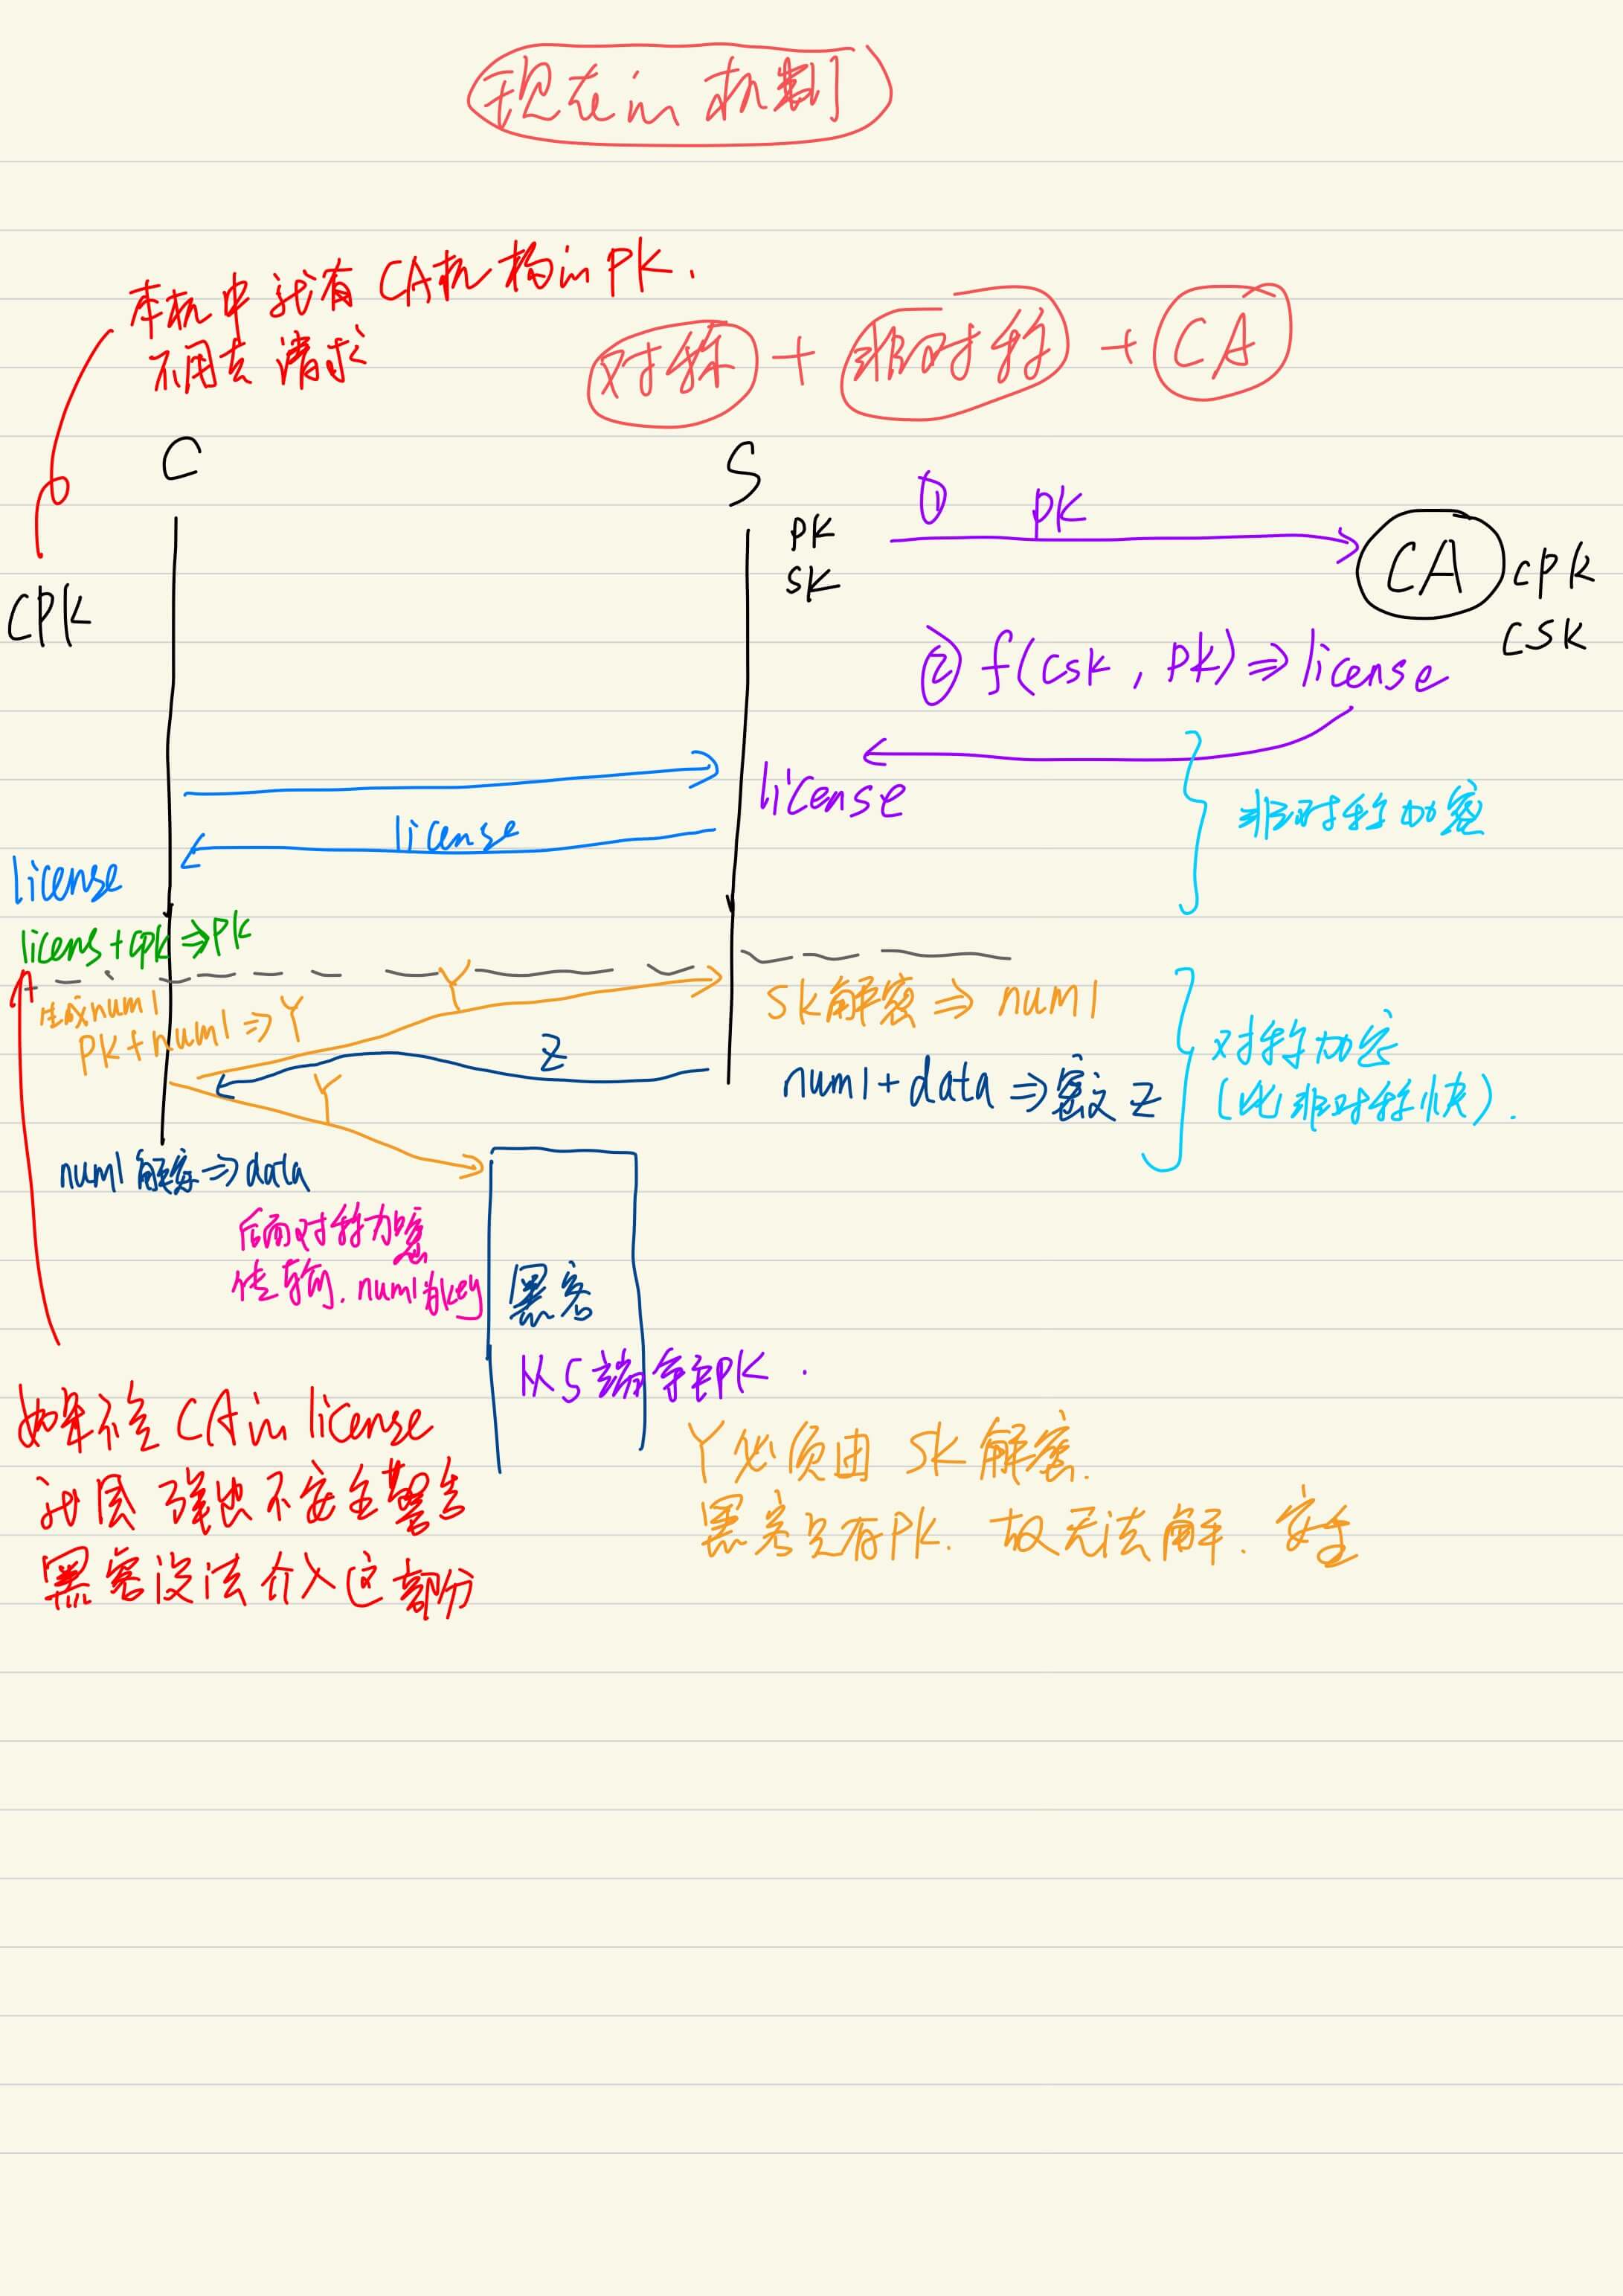 现在的机制
本机中就有CA机构的PK.
不用去请求
对称 + 非对称 + CA
C
S
① PK
PK
SK
CA
CPK
CSK
CPK
② f(CSK, PK) ⇒ license
license
license
非对称加密
license
licens+cpk ⇒ PK
生成num1
PK+num1 ⇒ Y
Y
SK解密 ⇒ num1
Z
Y
num1+data ⇒ 密文 Z
对称加密
(比非对称快).
num1 解密 ⇒ data
后面对称加密
传输. num1为key
黑客
从S端拿到PK.
如果不是CA的license
就会弹出不安全警告
黑客没法介入这部分
Y必须由 SK 解密.
黑客只有PK. 故无法解. 安全